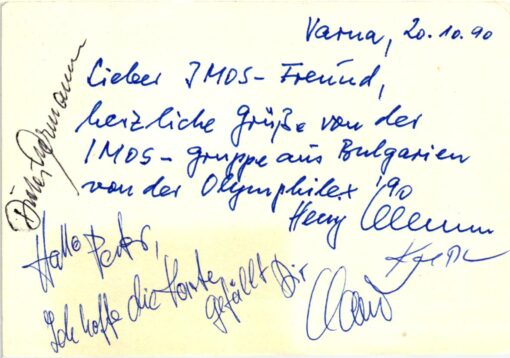 Varna, 20.10.90
Lieber IMOS-Freund,
herzliche Grüße von der
IMOS-gruppe aus Bulgarien
von der Olymphilex '90
Hallo Peter,
Ich hoffe die Karte
gefällt Dir